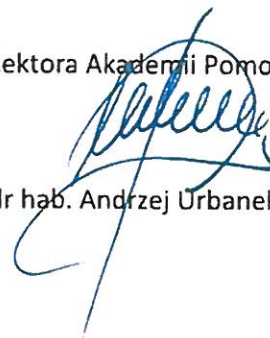 ektora Akademii Pomo
dr hab. Andrzej Urbanek